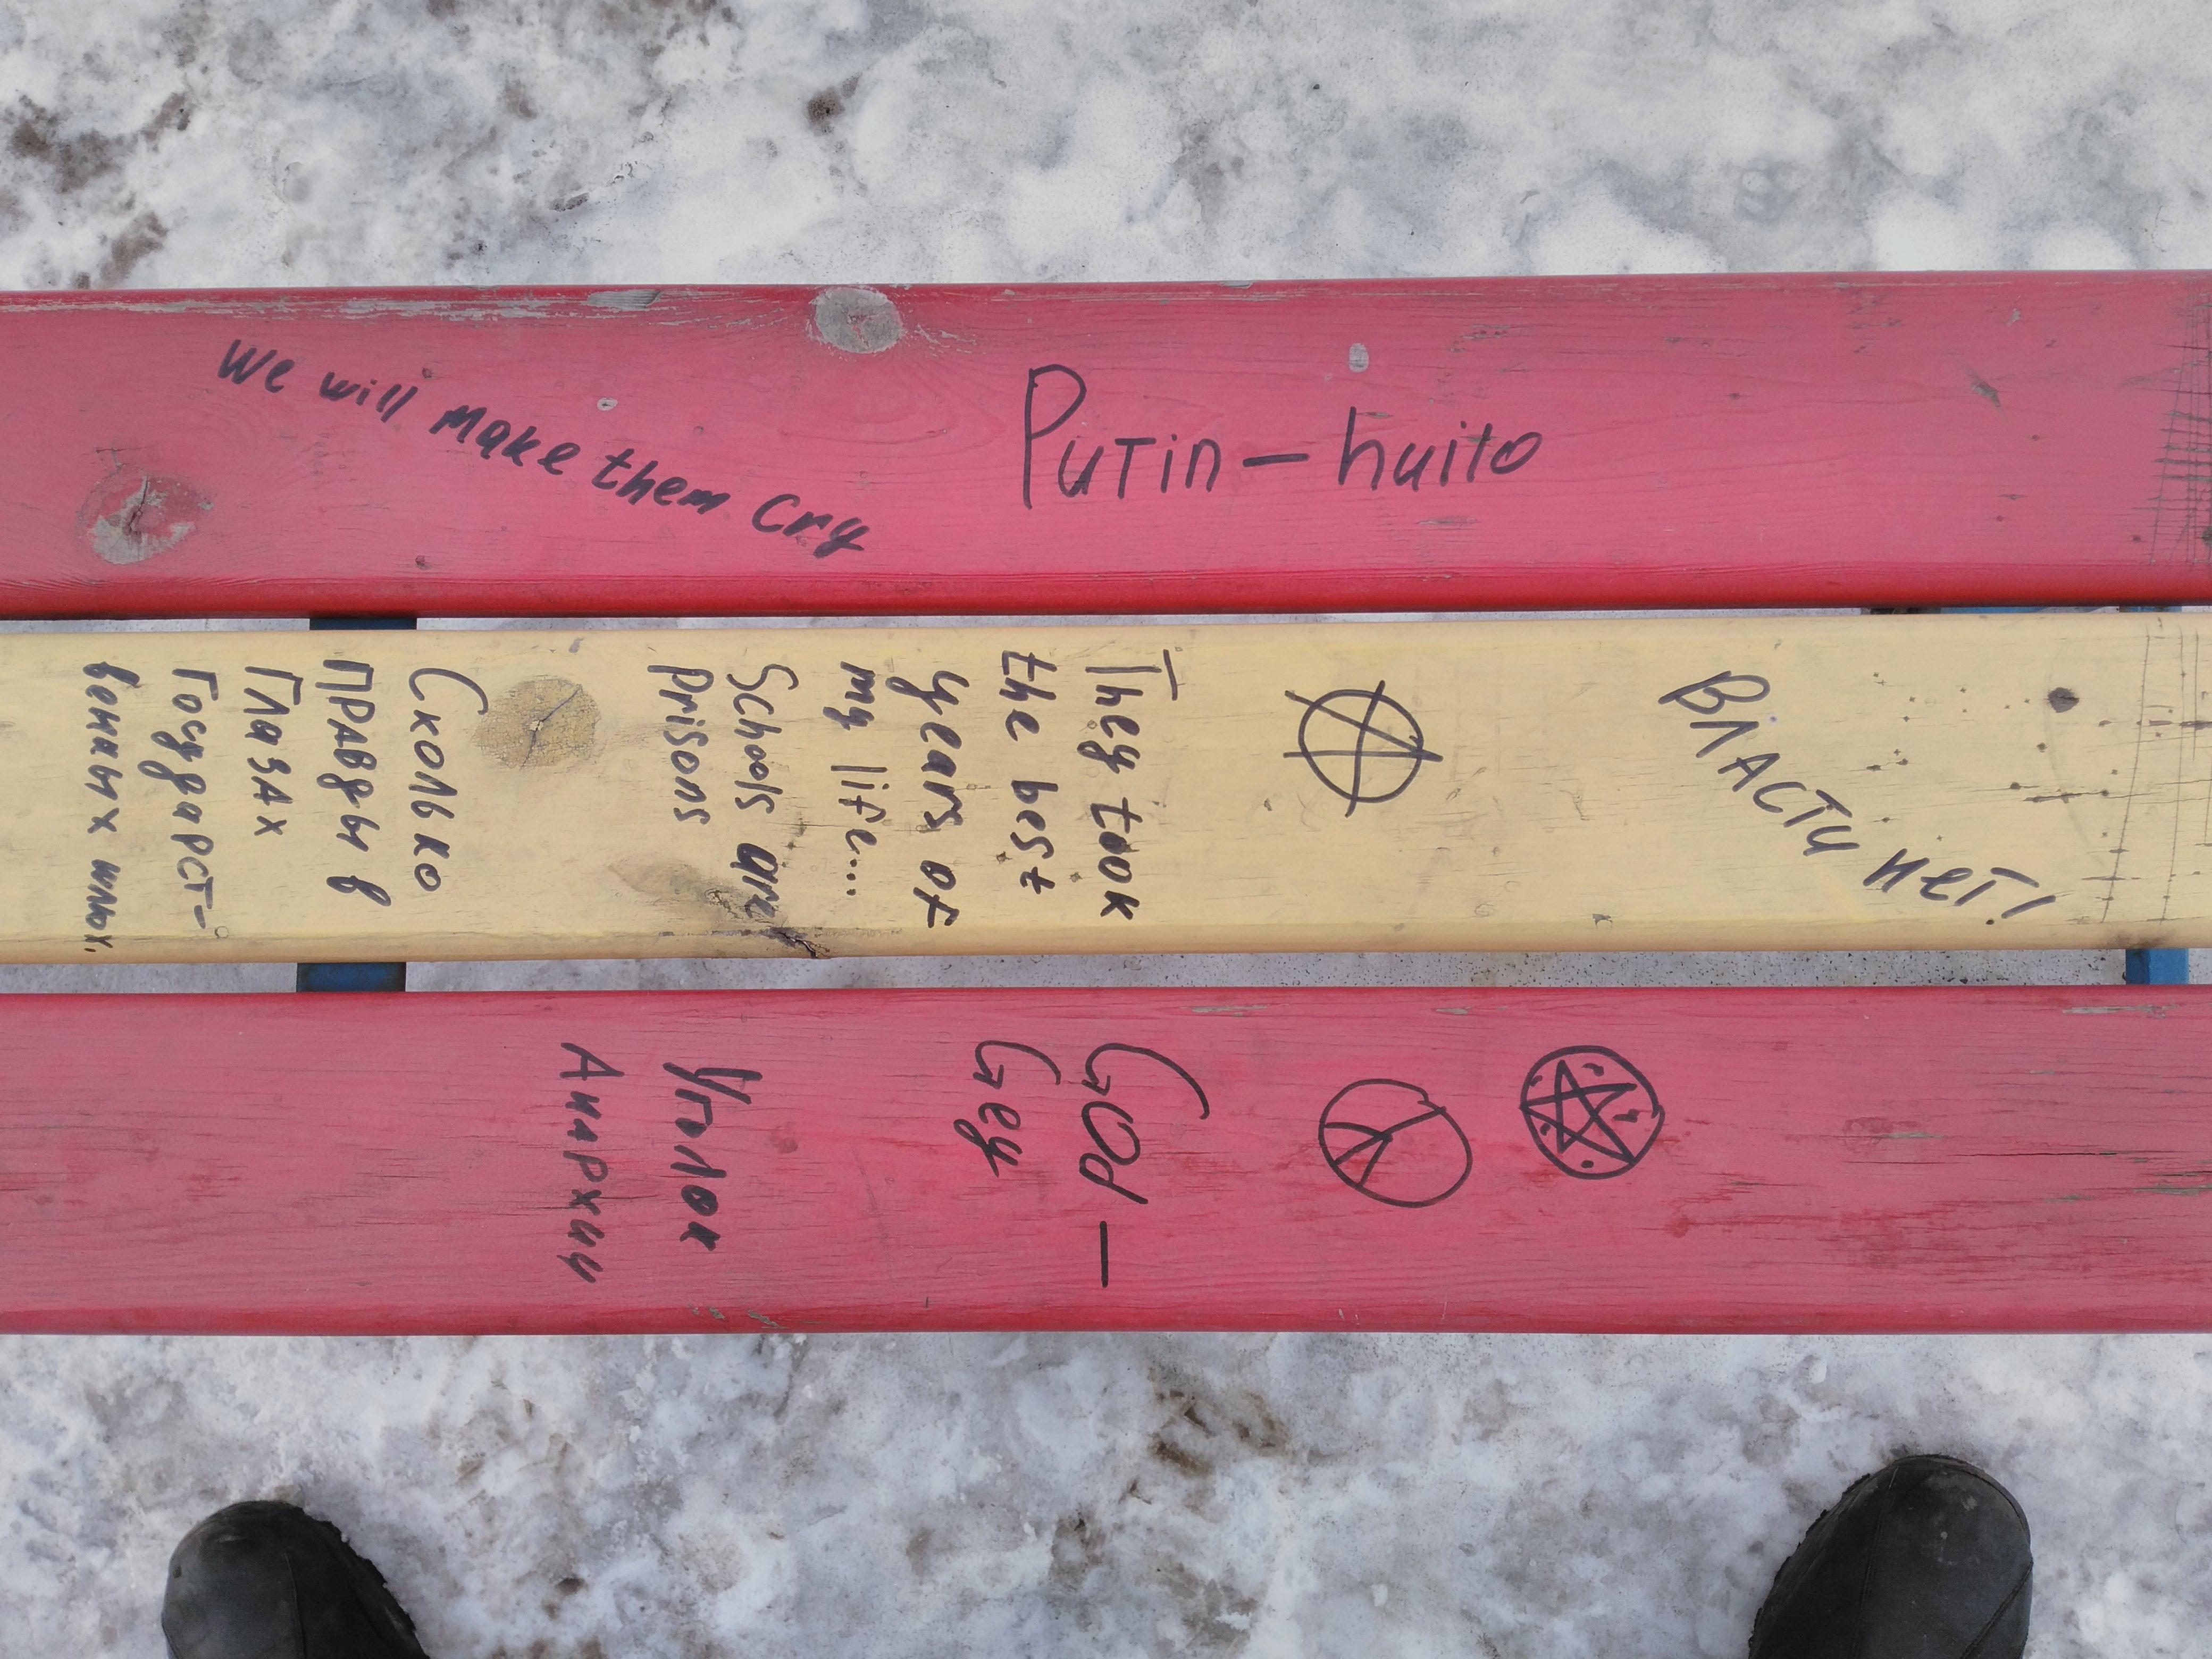 We will make them cry
Putin - huilo
They took
the best
years of
my life....
Schools are
prisons
Сколько
правды в
глазах
Государст-
венных шлюх,
ВЛАСТИ НЕТ!
God -
Gey
Уголок
Анархии